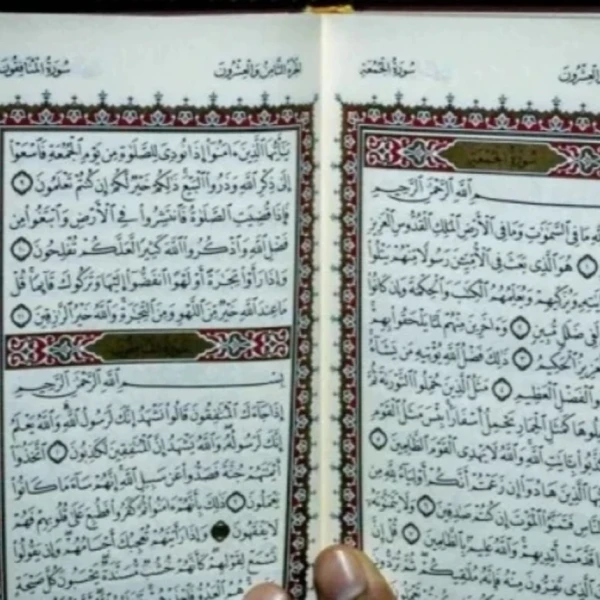 سُورَةُ الجُمُعَةِ
سُورَةُ الجُمُعَةِ
ـمِ ٱللَّهِ ٱلرَّحْمَٰنِ ٱلرَّحِيمِ
لِلَّهِ مَا فِى ٱلسَّمَٰوَٰتِ وَمَا فِى ٱلْأَرْضِ ٱلْمَلِكِ ٱلْقُدُّوسِ ٱلْعَزِيزِ
١ هُوَ ٱلَّذِى بَعَثَ فِى ٱلْأُمِّيِّـۧنَ رَسُولًا مِّنْهُمْ يَتْلُوا۟
وَيُزَكِّيهِمْ وَيُعَلِّمُهُمُ ٱلْكِتَٰبَ وَٱلْحِكْمَةَ وَإِن كَانُوا۟
لَفِى ضَلَٰلٍ مُّبِينٍ ٢ وَءَاخَرِينَ مِنْهُمْ لَمَّا يَلْحَقُوا۟ بِهِمْ
ٱلْحَكِيمُ ٣ ذَٰلِكَ فَضْلُ ٱللَّهِ يُؤْتِيهِ مَن يَشَآءُ
ٱلْفَضْلِ ٱلْعَظِيمِ ٤ مَثَلُ ٱلَّذِينَ حُمِّلُوا۟ ٱلتَّوْرَىٰةَ ثُمَّ
كَمَثَلِ ٱلْحِمَارِ يَحْمِلُ أَسْفَارًۢا بِئْسَ مَثَلُ ٱلْقَوْمِ
بِـَٔايَٰتِ ٱللَّهِ وَٱللَّهُ لَا يَهْدِى ٱلْقَوْمَ ٱلظَّٰلِمِينَ ٥
ٱلَّذِينَ هَادُوٓا۟ إِن زَعَمْتُمْ أَنَّكُمْ أَوْلِيَآءُ لِلَّهِ مِن
ٱلنَّاسِ فَتَمَنَّوُا۟ ٱلْمَوْتَ إِن كُنتُمْ صَٰدِقِينَ ٦ وَلَا يَتَمَنَّوْنَهُۥٓ
قَدَّمَتْ أَيْدِيهِمْ وَٱللَّهُ عَلِيمٌۢ بِٱلظَّٰلِمِينَ ٧ قُلْ إِنَّ
ٱلَّذِى تَفِرُّونَ مِنْهُ فَإِنَّهُۥ مُلَٰقِيكُمْ ثُمَّ تُرَدُّونَ
الجُزْءُ الثَّامِنُ وَالعِشْرُونَ
سُورَةُ المُنَافِقُونَ
يَٰٓأَيُّهَا ٱلَّذِينَ ءَامَنُوٓا۟ إِذَا نُودِىَ لِلصَّلَوٰةِ مِن يَوْمِ ٱلْجُمُعَةِ فَٱسْعَوْا۟
إِلَىٰ ذِكْرِ ٱللَّهِ وَذَرُوا۟ ٱلْبَيْعَ ذَٰلِكُمْ خَيْرٌ لَّكُمْ إِن كُنتُمْ تَعْلَمُونَ ٩
فَإِذَا قُضِيَتِ ٱلصَّلَوٰةُ فَٱنتَشِرُوا۟ فِى ٱلْأَرْضِ وَٱبْتَغُوا۟ مِن
فَضْلِ ٱللَّهِ وَٱذْكُرُوا۟ ٱللَّهَ كَثِيرًا لَّعَلَّكُمْ تُفْلِحُونَ ١٠
وَإِذَا رَأَوْا۟ تِجَٰرَةً أَوْ لَهْوًا ٱنفَضُّوٓا۟ إِلَيْهَا وَتَرَكُوكَ قَآئِمًا قُلْ
مَا عِندَ ٱللَّهِ خَيْرٌ مِّنَ ٱللَّهْوِ وَمِنَ ٱلتِّجَٰرَةِ وَٱللَّهُ خَيْرُ ٱلرَّٰزِقِينَ ١١
بِسْـــمِ ٱللَّهِ ٱلرَّحْمَٰنِ ٱلرَّحِيمِ
إِذَا جَآءَكَ ٱلْمُنَٰفِقُونَ قَالُوا۟ نَشْهَدُ إِنَّكَ لَرَسُولُ ٱللَّهِ وَٱللَّهُ يَعْلَمُ
إِنَّكَ لَرَسُولُهُۥ وَٱللَّهُ يَشْهَدُ إِنَّ ٱلْمُنَٰفِقِينَ لَكَٰذِبُونَ ١ ٱتَّخَذُوٓا۟
أَيْمَٰنَهُمْ جُنَّةً فَصَدُّوا۟ عَن سَبِيلِ ٱللَّهِ إِنَّهُمْ سَآءَ مَا كَانُوا۟
يَعْمَلُونَ ٢ ذَٰلِكَ بِأَنَّهُمْ ءَامَنُوا۟ ثُمَّ كَفَرُوا۟ فَطُبِعَ عَلَىٰ قُلُوبِهِمْ فَهُمْ
لَا يَفْقَهُونَ ٣ وَإِذَا رَأَيْتَهُمْ تُعْجِبُكَ أَجْسَامُهُمْ وَإِن يَقُولُوا۟
تَسْمَعْ لِقَوْلِهِمْ كَأَنَّهُمْ خُشُبٌ مُّسَنَّدَةٌ يَحْسَبُونَ كُلَّ صَيْحَةٍ